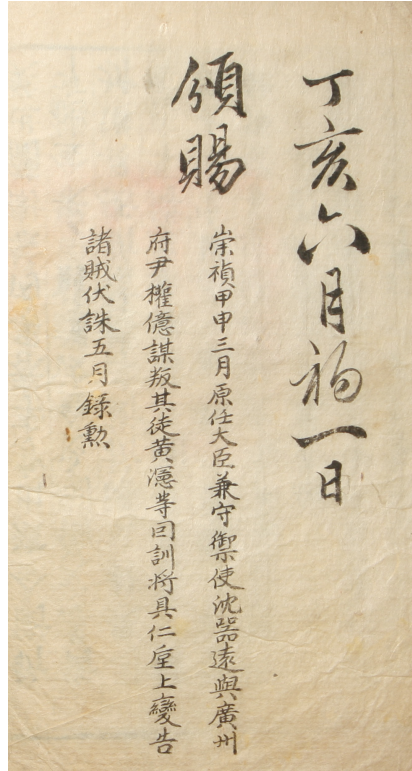 丁亥六月初一日
頒賜
崇禎甲申三月原任大臣兼守禦使沈器遠與廣州
府尹權億謀叛其徒黃瀗等因訓將具仁垕上變告
諸賊伏誅五月錄勳